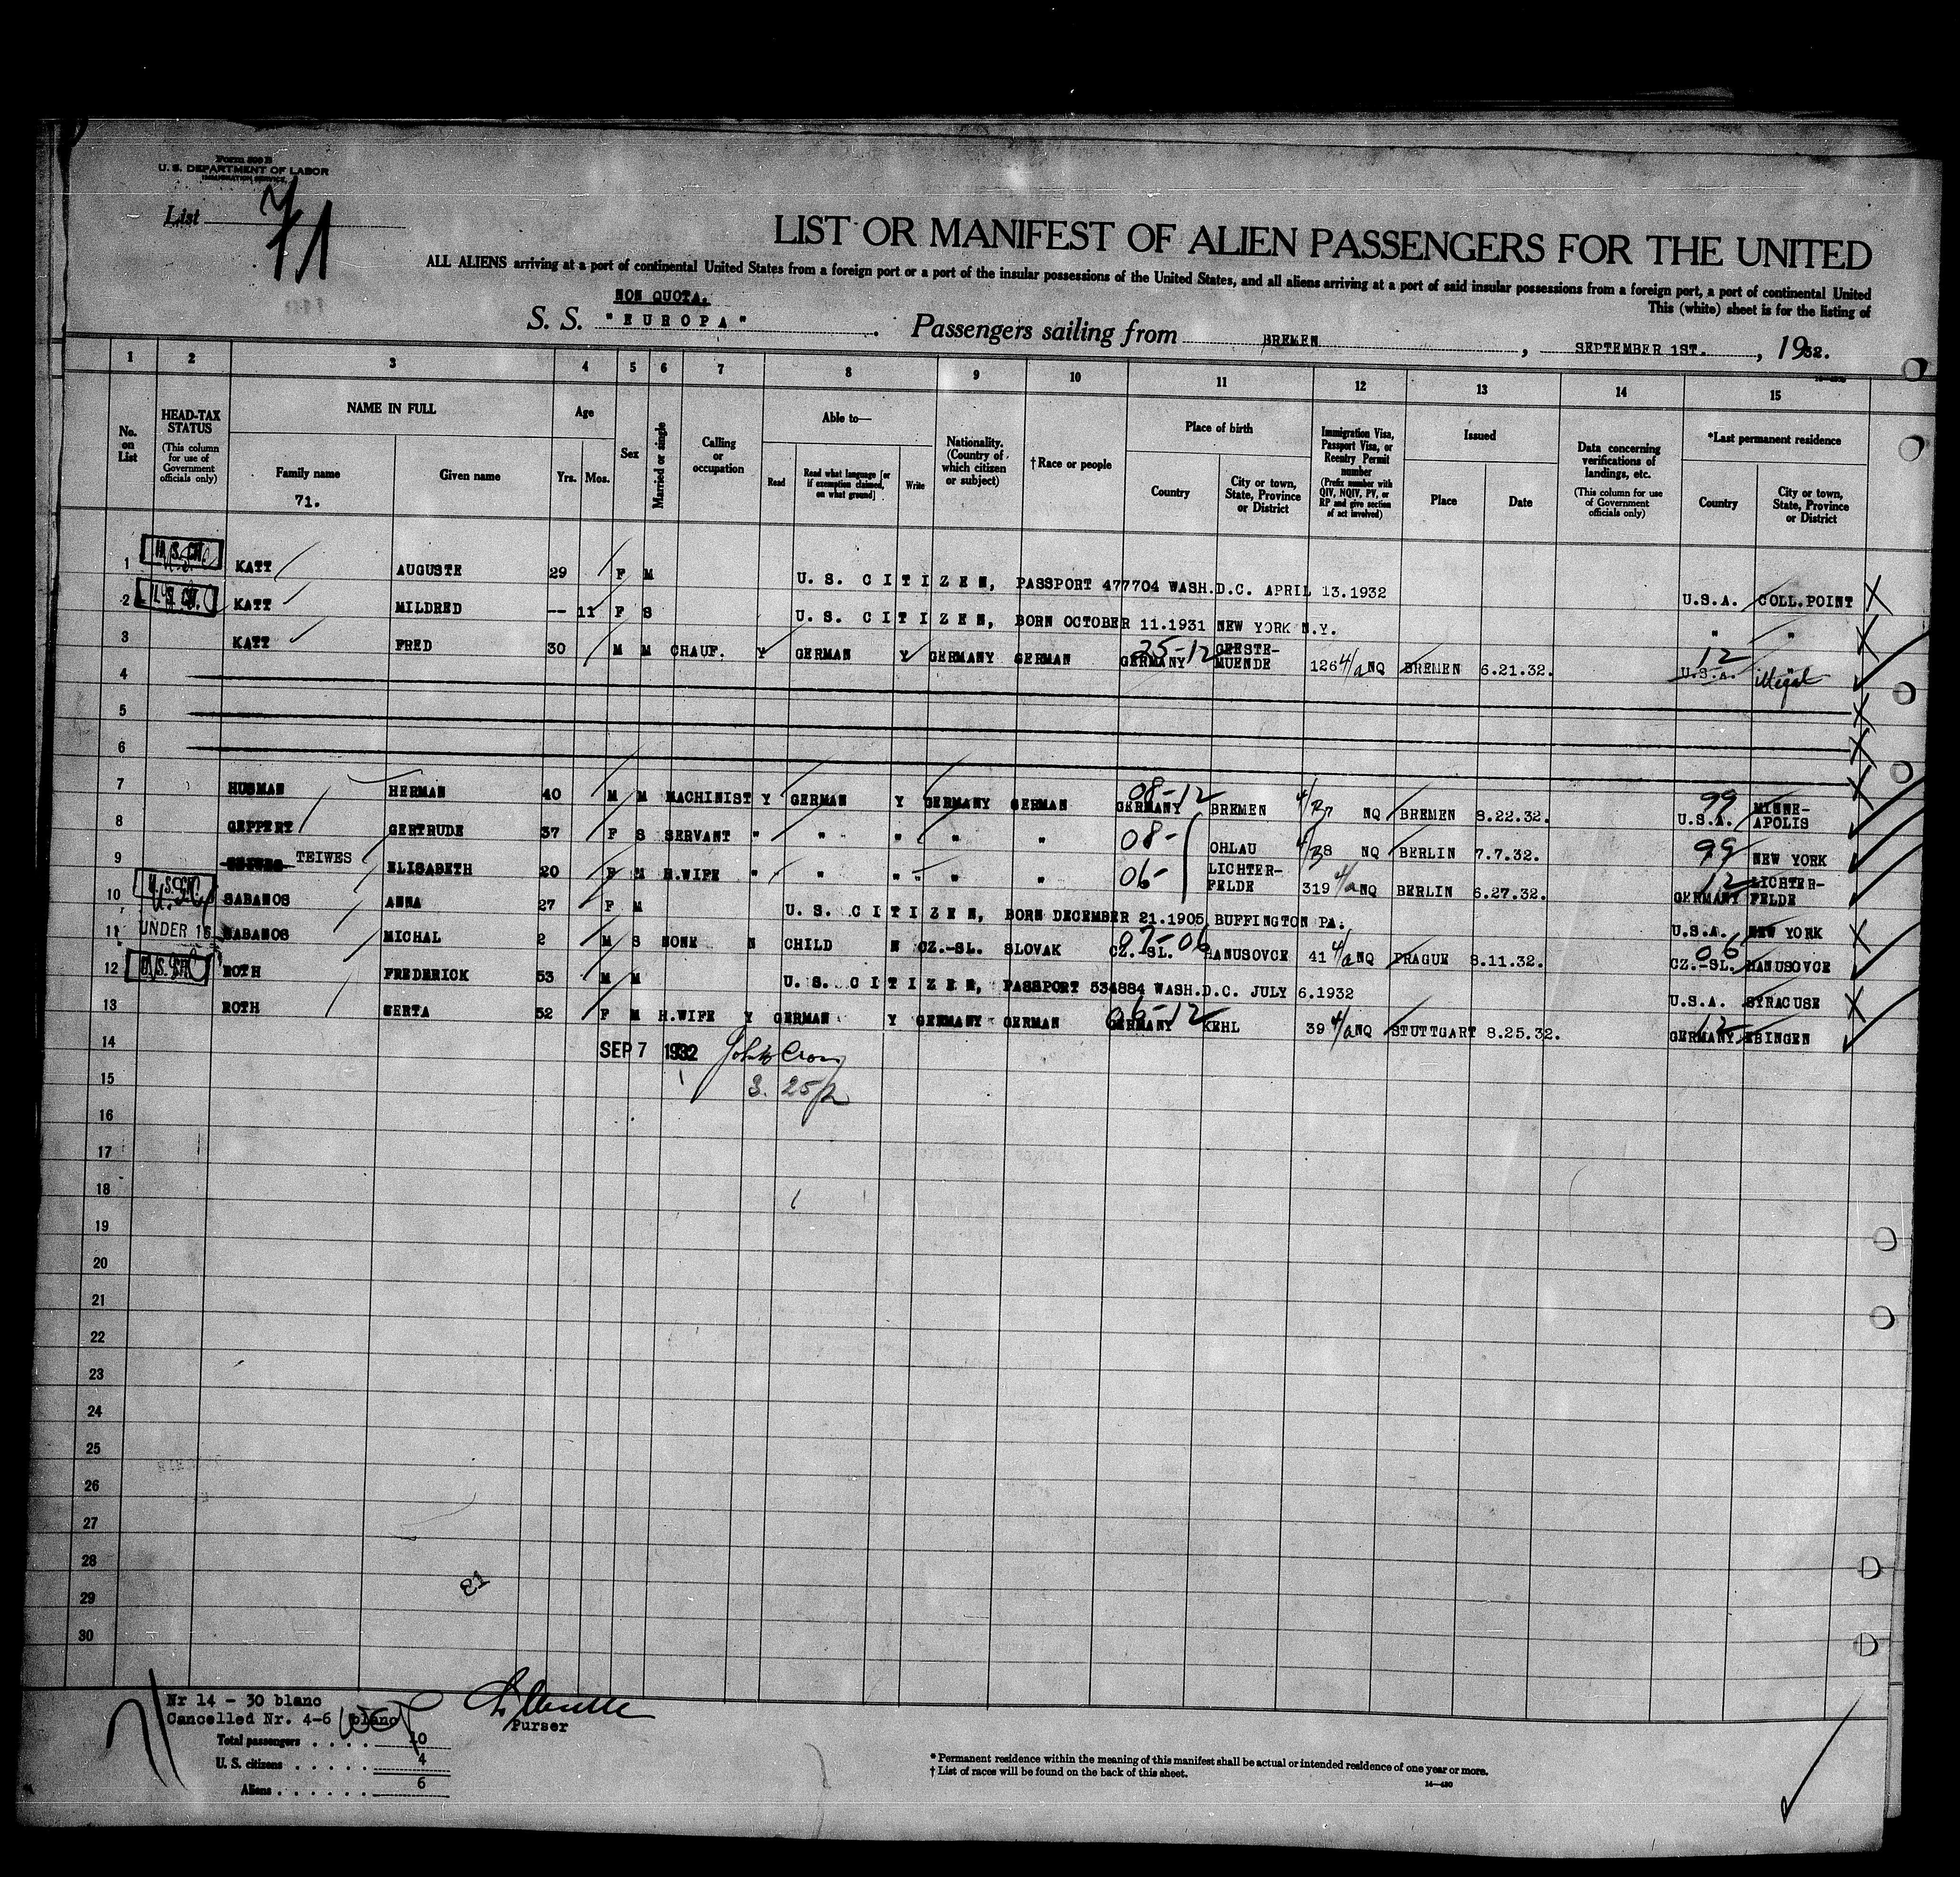 Form 500 B
U. S. DEPARTMENT OF LABOR
IMMIGRATION SERVICE
List 71
LIST OR MANIFEST OF ALIEN PASSENGERS FOR THE UNITED
ALL ALIENS arriving at a port of continental United States from a foreign port or a port of the insular possessions of the United States, and all aliens arriving at a port of said insular possessions from a foreign port, a port of continental United
This (white) sheet is for the listing of
NON QUOTA.
S. S. "EUROPA" Passengers sailing from BREMEN, SEPTEMBER 1ST., 1932.
1 2 3 4 5 6 7 8 9 10 11 12 13 14 15
No. on List
HEAD-TAX STATUS (This column for use of Government officials only)
NAME IN FULL
Family name
71.
Given name
Age
Yrs. Mos.
Sex
Married or single
Calling or occupation
Able to—
Read
Read what language [or if exemption claimed, on what ground]
Write
Nationality. (Country of which citizen or subject)
†Race or people
Place of birth
Country
City or town, State, Province or District
Immigration Visa, Passport Visa, or Reentry Permit number (Prefix number with QIV, NQIV, PV, or RP and give section of act involved)
Issued
Place
Date
Data concerning verifications of landings, etc. (This column for use of Government officials only)
*Last permanent residence
Country
City or town, State, Province or District
1 KATT AUGUSTE 29 F M U. S. CITIZEN, PASSPORT 477704 WASH.D.C. APRIL 13.1932 U.S.A. COLL.POINT
2 KATT MILDRED -- 11 F S U. S. CITIZEN, BORN OCTOBER 11.1931 NEW YORK N.Y. " "
3 KATT FRED 30 M M CHAUF. Y GERMAN Y GERMANY GERMAN 25-12 GERMANY GEESTE-MUENDE 126 4/a NQ BREMEN 6.21.32. 12 U.S.A. illegal
4
5
6
7 HUSMAN HERMAN 40 M M MACHINIST Y GERMAN Y GERMANY GERMAN 08-12 GERMANY BREMEN NQ BREMEN 8.22.32. 99 U.S.A. MINNE-APOLIS
8 GEPPERT GERTRUDE 37 F S SERVANT " " " " " 08- OHLAU NQ BERLIN 7.7.32. 99 NEW YORK
9 TEIWES ELISABETH 20 F M H.WIFE " " " " " 06- LICHTER-FELDE 319 4/a NQ BERLIN 6.27.32. 12 GERMANY LICHTER-FELDE
10 SABANOS ANNA 27 F M U. S. CITIZEN, BORN DECEMBER 21.1905 BUFFINGTON PA. U.S.A. NEW YORK
11 UNDER 16 SABANOS MICHAL 2 M S NONE N CHILD N CZ.-SL. SLOVAK 07-06 CZ.-SL. HANUSOVCE 41 4/a NQ PRAGUE 8.11.32. 06 CZ.-SL. HANUSOVCE
12 ROTH FREDERICK 53 M M U. S. CITIZEN, PASSPORT 534884 WASH.D.C. JULY 6.1932 U.S.A. SYRACUSE
13 ROTH BERTA 52 F M H.WIFE Y GERMAN Y GERMANY GERMAN 06-12 GERMANY KEHL 39 4/a NQ STUTTGART 8.25.32. 12 GERMANY EBINGEN
14 SEP 7 1932
15
16
17
18
19
20
21
22
23
24
25
26
27
28
29
30
Nr 14 - 30 blanc
Cancelled Nr. 4-6 blanc
Purser
Total passengers . . . . 10
U. S. citizens . . . . . 4
Aliens . . . . . . 6
* Permanent residence within the meaning of this manifest shall be actual or intended residence of one year or more.
† List of races will be found on the back of this sheet.